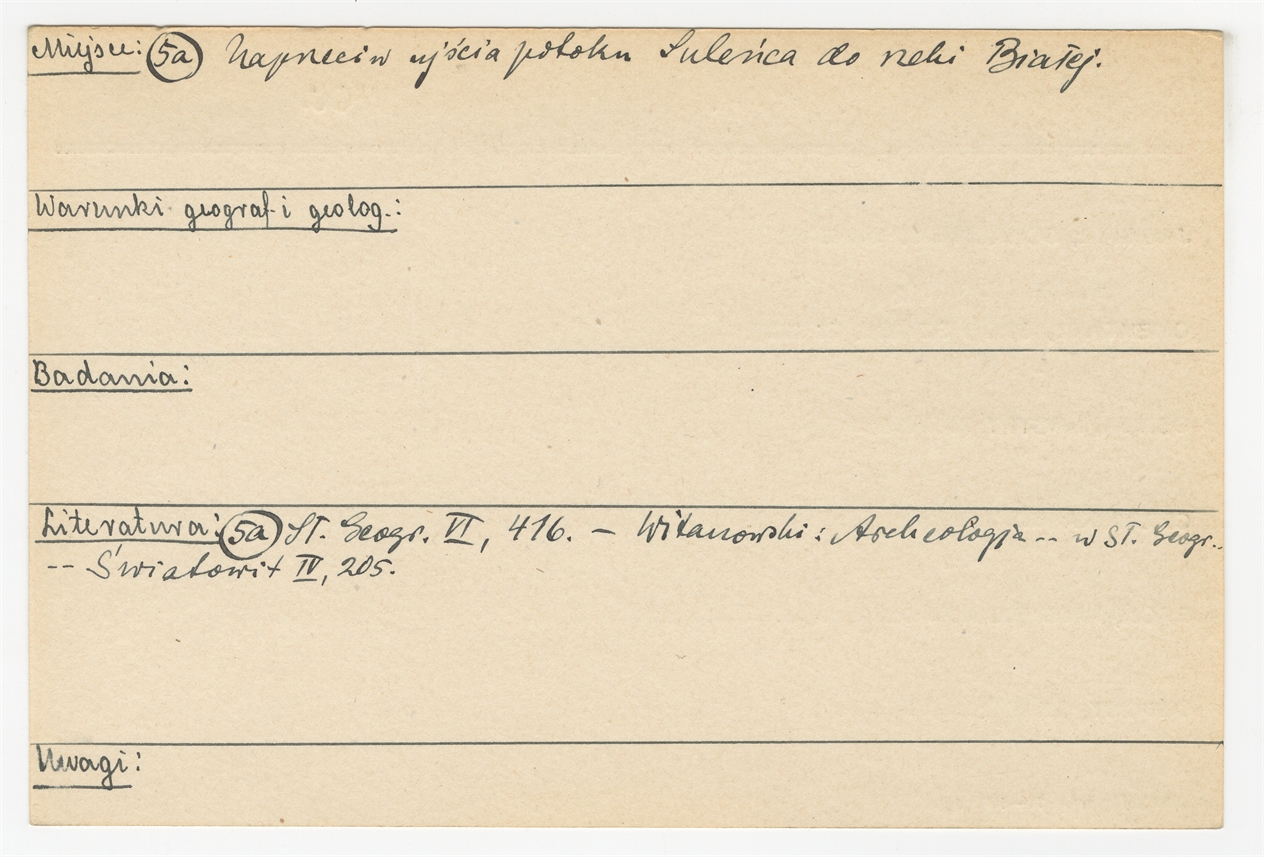 Miejsce: 5a Naprzeciw ujścia potoku Suleńca do rzeki Białej.
Warunki geograf. i geolog.:
Badania:
Literatura: 5a Sł. Geogr. VI, 416. — Witanowski: Archeologja -- w Sł. Geogr..
-- Światowit IV, 205.
Uwagi: